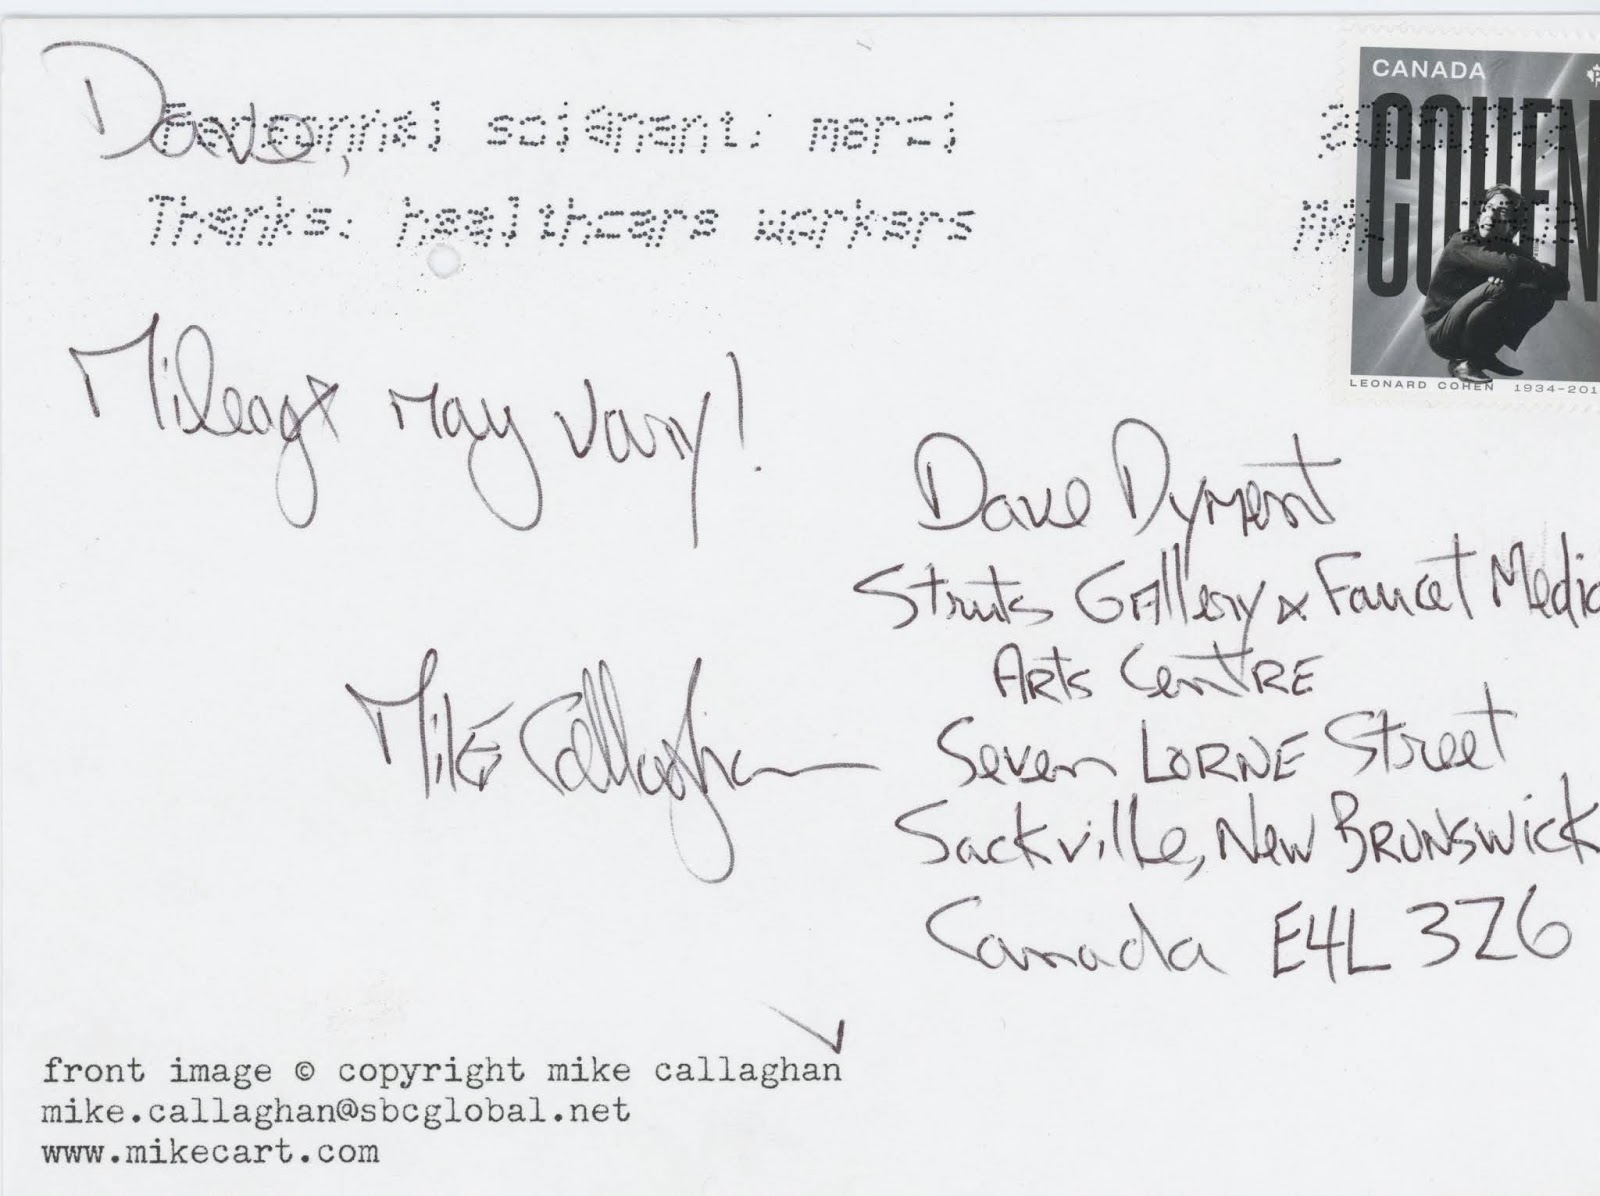 Dave,
Personnel soignant: merci
Thanks: healthcare workers
CANADA
COHEN
LEONARD COHEN 1934-201
Mileage may vary!
Mike Callaghan
Dave Dyment
Struts Gallery & Faucet Media
Arts Centre
Seven Lorne Street
Sackville, New Brunswick
Canada E4L 3Z6
front image © copyright mike callaghan
mike.callaghan@sbcglobal.net
www.mikecart.com